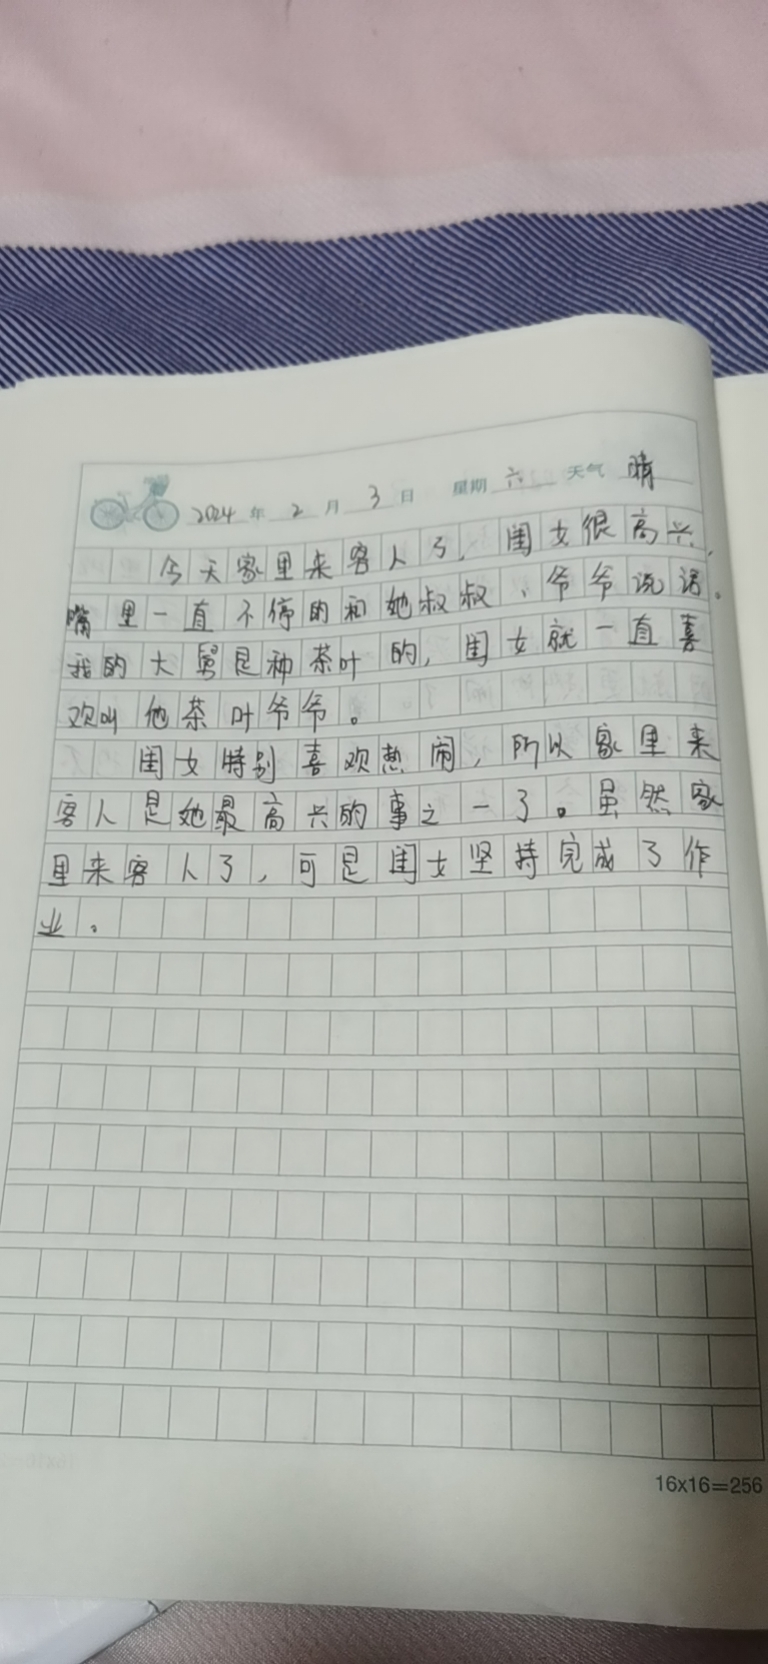 2024年2月3日 星期六 天气 晴
今天家里来客人了,闺女很高兴,
嘴里一直不停的和她叔叔、爷爷说话。
我的大舅是种茶叶的,闺女就一直喜
欢叫他茶叶爷爷。
闺女特别喜欢热闹,所以家里来
客人是她最高兴的事之一了。虽然家
里来客人了,可是闺女坚持完成了作
业。
16x16=256